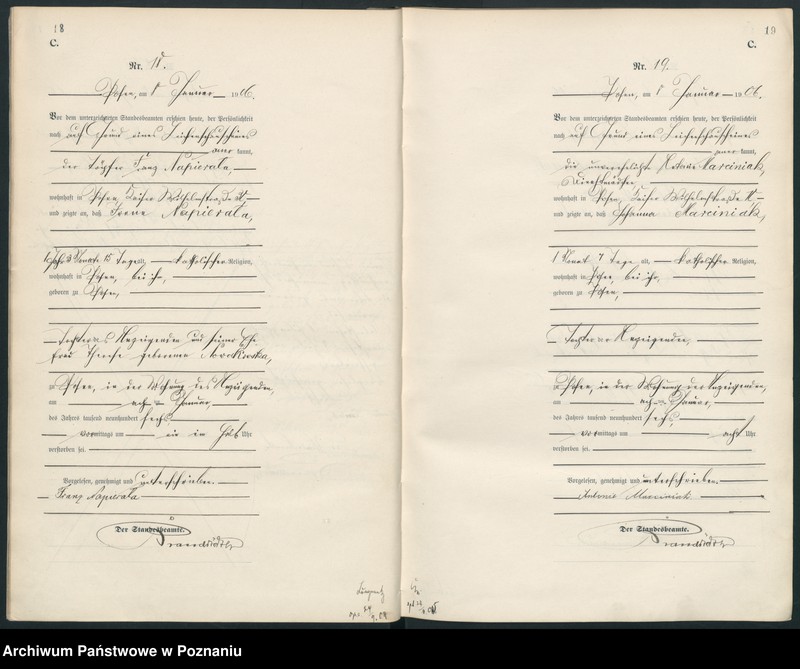 18
C.
Nr. 18.
Posen, am 8 Januar 1906.
Vor dem unterzeichneten Standesbeamten erschien heute, der Persönlichkeit
nach auf Grund eines Leichenschauscheines
aner kannt,
der Töpfer Franz Napierala
wohnhaft in Posen, Kaiser Wilhelmstraße
und zeigte an, daß Irene Napierala,
15 Tage alt, katholischer Religion,
wohnhaft in Posen, bei ihr,
geboren zu Posen,
Tochter des Anzeigenden und seiner Ehe
frau geborenen Nowakowska,
zu Posen, in der Wohnung des Anzeigenden,
am acht Januar
des Jahres tausend neunhundert sechs
vormittags um ein ein halb Uhr
verstorben sei.
Vorgelesen, genehmigt und unterschrieben.
Franz Napierala
Der Standesbeamte.
19
C.
Nr. 19.
Posen, am 8 Januar 1906.
Vor dem unterzeichneten Standesbeamten erschien heute, der Persönlichkeit
nach auf Grund eines Leichenschauscheines
aner kannt,
die unverehelichte Marciniak,
Dienstmädchen
wohnhaft in Posen, Kaiser Wilhelmstraße
und zeigte an, daß Johanna Marciniak,
1 Monat 7 Tage alt, katholischer Religion,
wohnhaft in Posen, bei ihr,
geboren zu Posen,
Tochter der Anzeigenden,
zu Posen, in der Wohnung der Anzeigenden,
am acht Januar,
des Jahres tausend neunhundert sechs,
vormittags um acht Uhr
verstorben sei.
Vorgelesen, genehmigt und unterschrieben.
Marciniak
Der Standesbeamte.
Archiwum Państwowe w Poznaniu